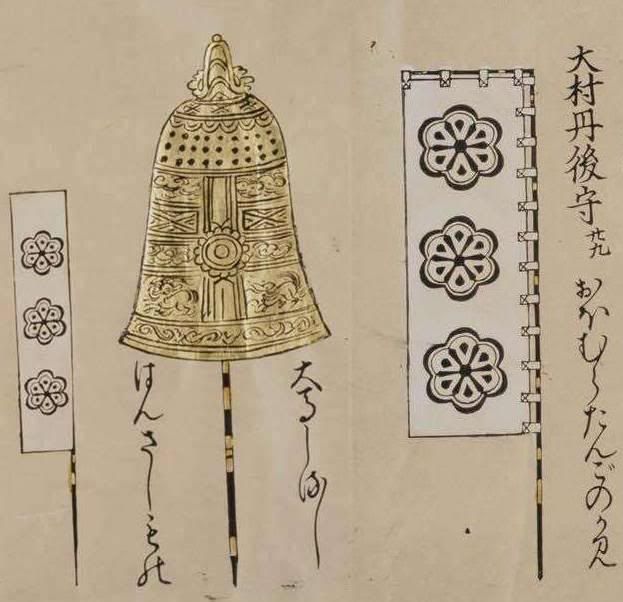 大村丹後守 廿九
おほむらたんごのかみ
大うましるし
はんさしもの